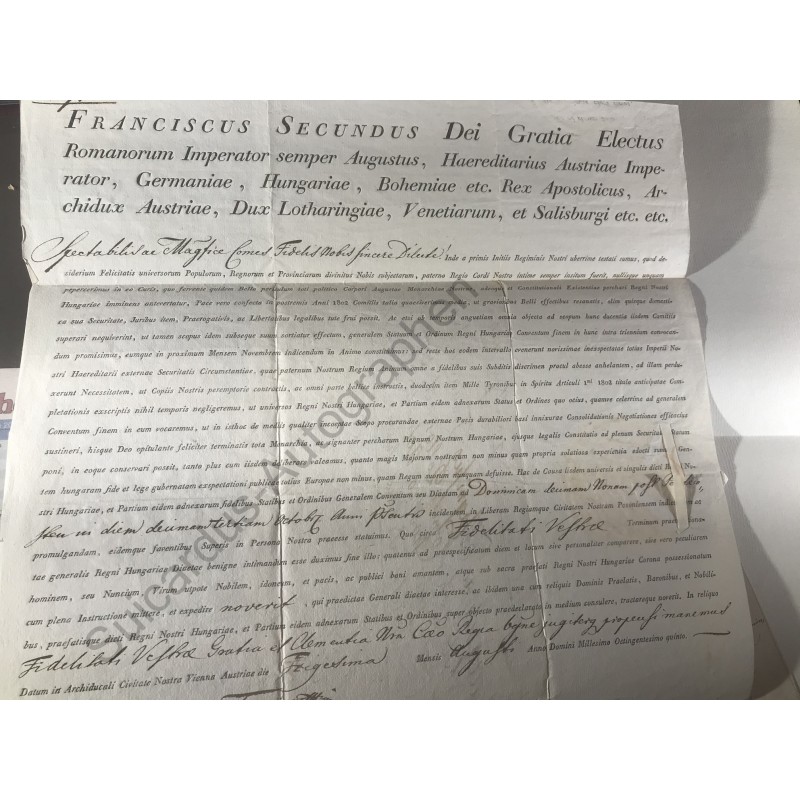 FRANCISCUS SECUNDUS Dei Gratia Electus
Romanorum Imperator semper Augustus, Haereditarius Austriae Impe-
rator, Germaniae, Hungariae, Bohemiae etc. Rex Apostolicus, Ar-
chidux Austriae, Dux Lotharingiae, Venetiarum, et Salisburgi etc. etc.
Spectabilis ac Magfice Comes Fidelis Nobis sincere Dilecte! Inde a primis Initiis Regiminis Nostri uberrime testati sumus, quod de-
siderium Felicitatis universorum Populorum, Regnorum et Provinciarum divinitus Nobis subjectorum, paterno Regio Cordi Nostro intime semper insitum fuerit, nullisque unquam
pepercerimus in eo Curis, quo ferreute quidem Bello periculum politico Corpori Augustae Monarchiae Constitutionali Existentiae perchari Regni Nostri
Hungariae imminens anteverteretur, Pace vero confecta in postremis Anni 1802 Comitiis totis a gravioribus Belli effectibus resonatis, olim quisque domesti-
ca sua Securitate, Juribus item, Praerogativis, ac Libertatibus legalibus tute frui possit. Ac etsi ob temporis angustiam omnia objecta ad sospem hanc ducentia iisdem Comitiis
superari nequiverint, ut tamen scopus idem subseque suum sortiatur effectum, generalem Statuum et Ordinum Regni Hungariae Conventum finem in hunc intra triennium convocan-
dum promisimus, eumque in proximum Mensem Novembrem indicendum in Animo constituimus; sed recta hoc eodem intervallo evenerunt novissimae inexspectatae totius Impetii No-
stri Haereditarii externae Securitatis Circumstantiae, quae paternum Nostrum Regium Animum omne a fidelibus suis Subditis discrimen procul abesse anhelantem, ad illam perdu-
xerunt Necessitatem, ut Copiis Nostris peremptorie contractis, ac omni parte bellice instructis, duodecim item Mille Tyronibus in Spiritu Articuli 1mi 1802 titulo anticipatae Com-
pletationis exscriptis nihil temporis negligeremus, ut universos Regni Nostri Hungariae, et Partium eidem adnexarum Status et Ordines quo otius, quamex celerrime ad generalem
Conventum finem in eum vocaremus, ut in isthoc de mediis qualiter inceptae Scopo procurandae externae Pacis durabiliori basi innixurae Consolidationis Negotiationes efficacius
sustineri, hisque Deo opitulante feliciter terminatis tota Monarchia, ac signanter percharum Regnum Nostrum Hungariae, ejusque legalis Constitutio ad plenam Securitatis Statum
poni, in eoque conservari possit, tanto plus cum iisdem deliberare valeamus, quanto magis Majorum nostrorum non minus quam propria solatiosa experientia edocti sumus Gen-
tem hungaram fide et lege gubernatam exspectationi publicae totius Europae non minus, quam Regum suorum nunquam defuisse. Hac de Causa iisdem universis et singulis dicti Regni No-
stri Hungariae, et Partium eidem adnexarum fidelibus Statibus et Ordinibus Generalem Conventum seu Diaetam ad Dominicam decimam Nonam post
sten in diem decimam tertiam Octobr. Anni incidentem in Liberam Regiamque Civitatem Nostram Posoniensem indicendam ac
promulgandam, eidemque favente Superis in Persona Nostra praeesse statuimus. Quo circa Fidelitati Vestrae Terminum praeattacto-
tae generalis Regni Hungariae Diaetae benigne intimandum esse duximus fine illo: quatenus ad praespecificatum diem et locum sive personaliter comparere, sive vero peculiarem
hominem, seu Nuncium, Virum utpote Nobilem, idoneum, et pacis, ac publici boni amantem, atque sub sacra praefati Regni Nostri Hungariae Corona possessionatum
cum plena Instructione mittere, et expedire noverit, qui praedictae Generali diaetae interesse, ac ibidem una cum reliquis Dominis Praelatis, Baronibus, et Nobili-
bus, praefatisque dicti Regni Nostri Hungariae, et Partium eidem adnexarum Statibus et Ordinibus super objecto praedeclarato in medium consulere, tractareque noverit. In reliquo
Fidelitati Vestrae Gratia et Clementia Nra Caeo Regia bgne jugiterq propensi manemus
Datum in Archiducali Civitate Nostra Vienna Austriae die Trigesima Mensis Augusti Anno Domini Millesimo Octingentesimo quinto.